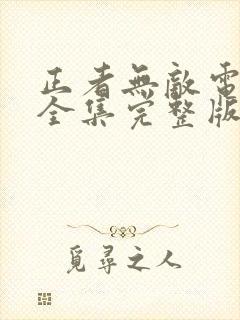 正者無敵電
全集完整版
覓尋之人